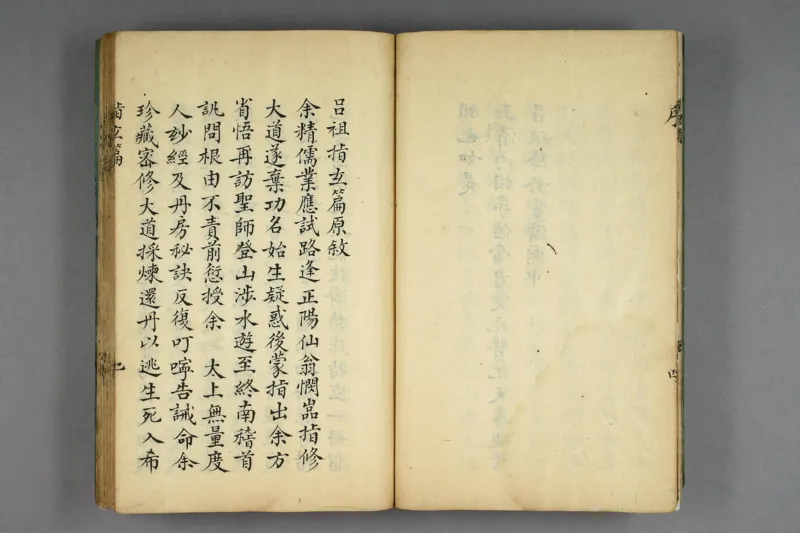 序
四
吕祖指玄篇原敘
余精儒業應試路逢正陽仙翁憫喦指修
大道遂棄功名始生疑惑後蒙指出余方
省悟再訪聖師登山涉水遊至終南稽首
訊問根由不責前愆授余　太上無量度
人玅經及丹房秘訣反復叮嚀告誡命余
珍藏密修大道採煉還丹以逃生死入希
指玄篇